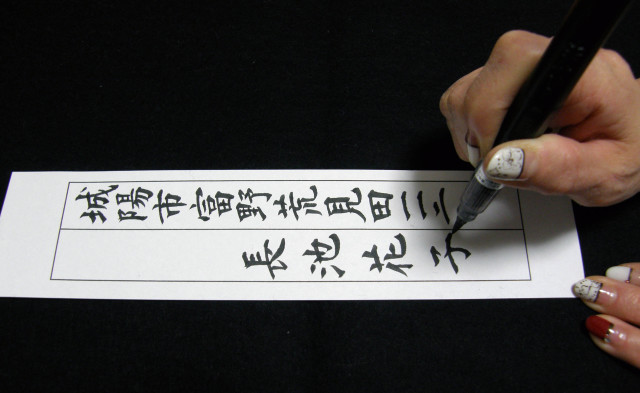 城陽市富野荒見田
長池花子